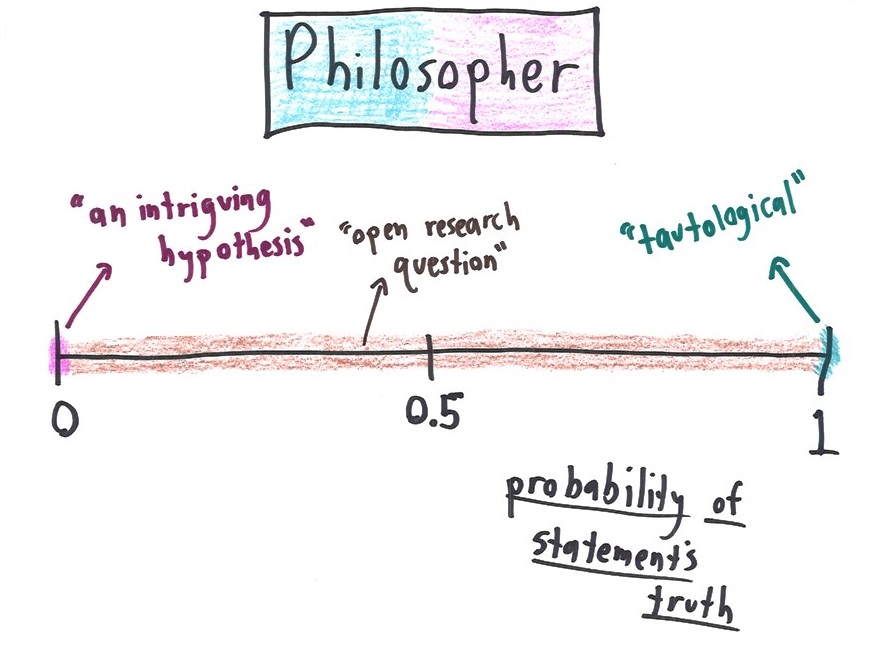 Philosopher
"an intriguing
hypothesis"
"open research
question"
"tautological"
0
0.5
1
probability of
statement's
truth